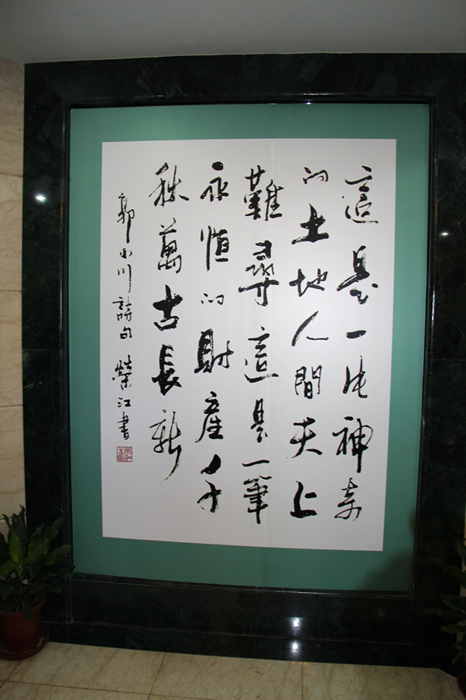 這是一片神奇
的土地人間天上
難尋這是一筆
永恒的財產千
秋萬古長新
郭小川詩句 榮江書